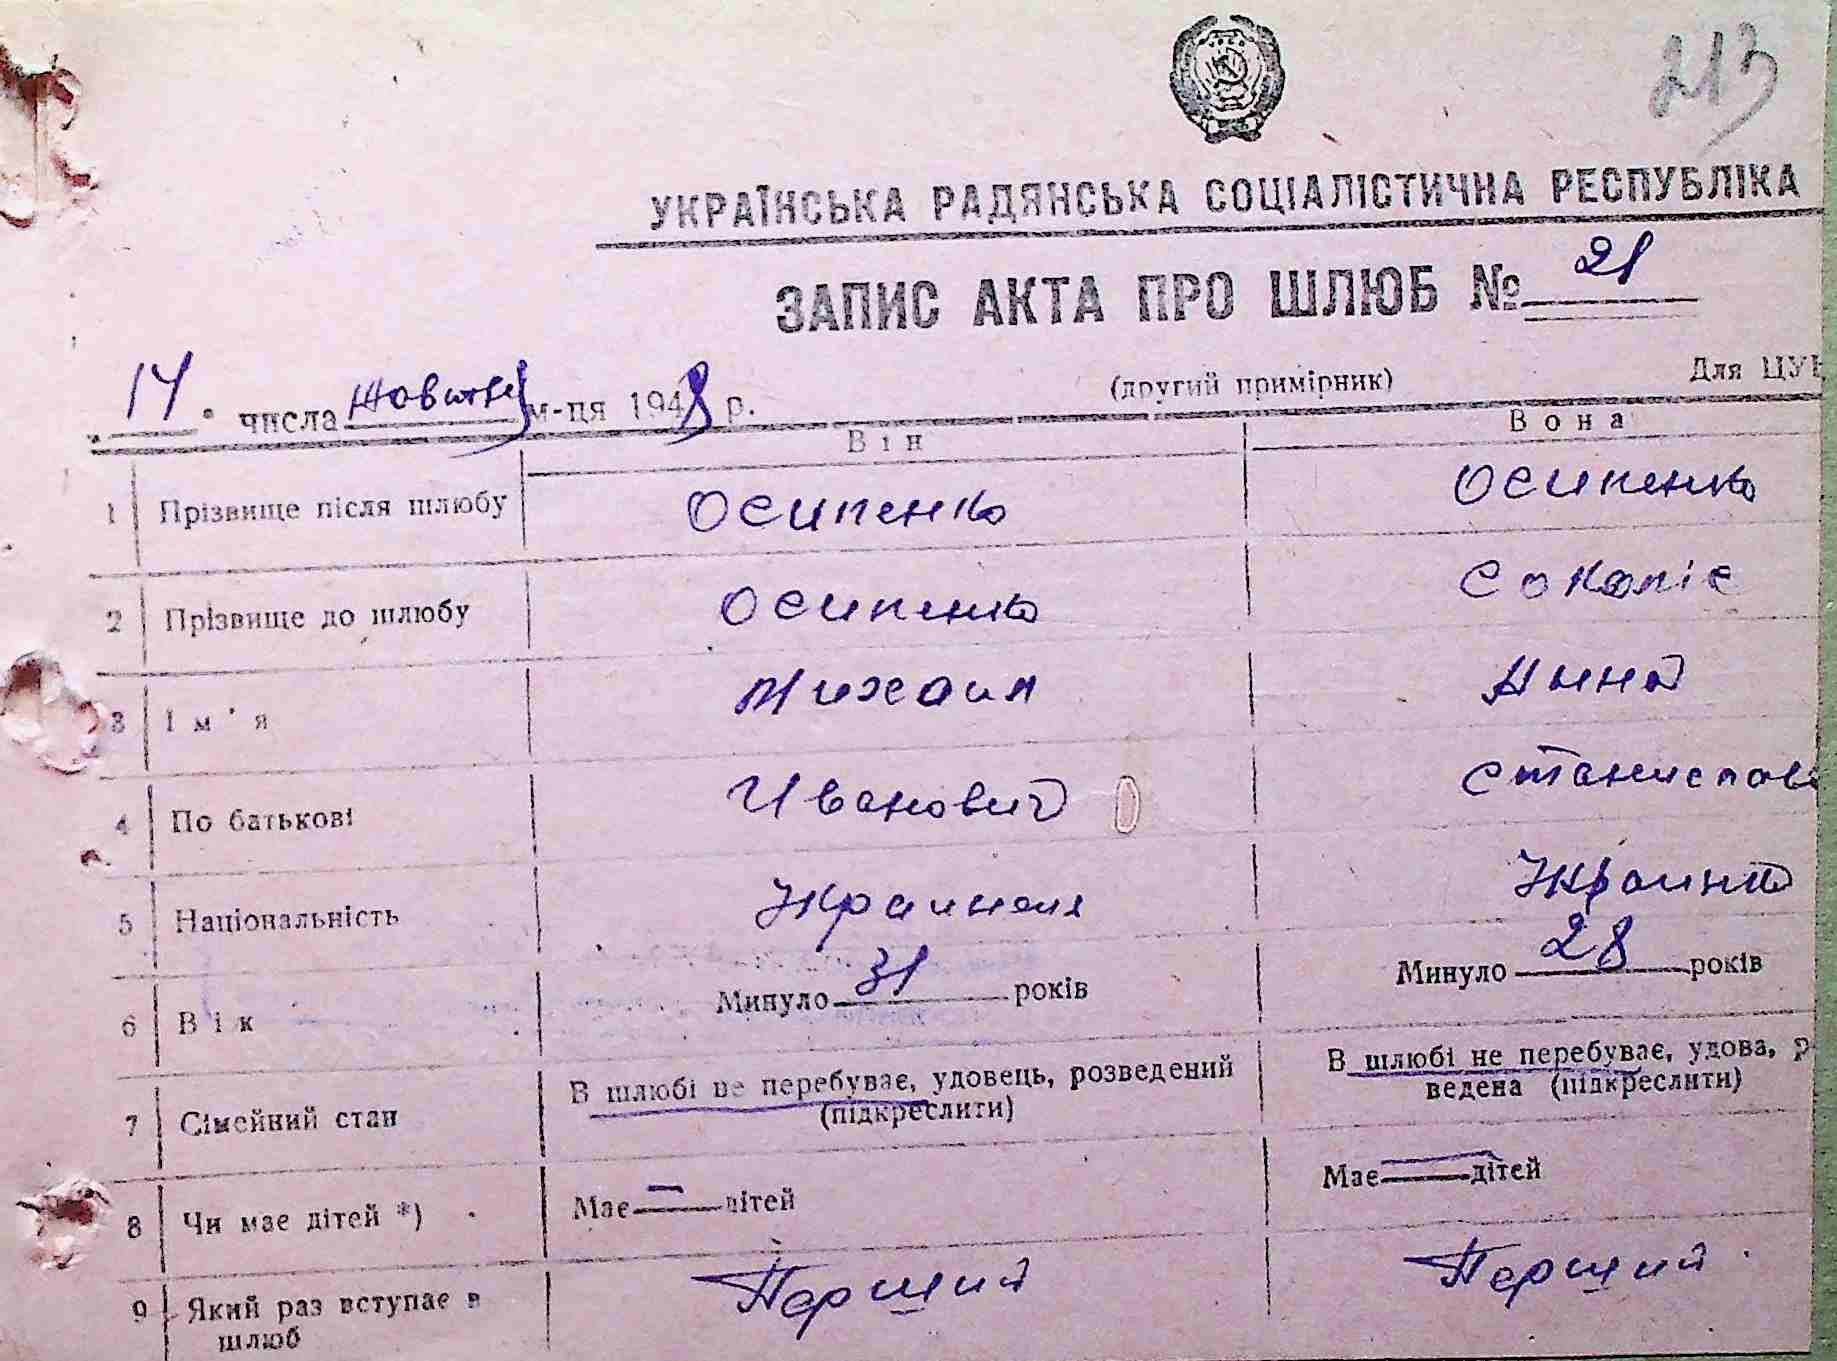 213
УКРАЇНСЬКА РАДЯНСЬКА СОЦІАЛІСТИЧНА РЕСПУБЛІКА
ЗАПИС АКТА ПРО ШЛЮБ № 21
14 числа Жовтня м-ця 1948 р. (другий примірник) Для ЦУ
Він Вона
1 Прізвище після шлюбу Осипенко Осипенко
2 Прізвище до шлюбу Осипенко
3 Ім'я Михаил Анна
4 По батькові Иванович Станислав
5 Національність
6 Вік Минуло 31 років Минуло 28 років
7 Сімейний стан В шлюбі не перебуває, удовець, розведений (підкреслити) В шлюбі не перебуває, удова, р
ведена (підкреслити)
8 Чи має дітей *) Має — дітей Має — дітей
9 Який раз вступає в шлюб Перший Перший